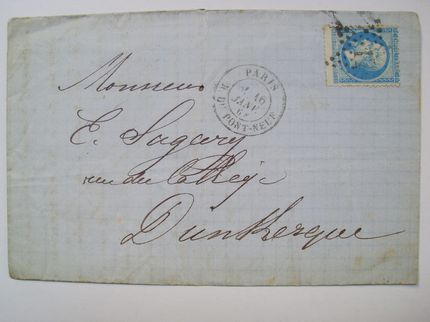 PARIS
16
JANV.
R. DU PONT-NEUF
Monsieur
E. Sagary
rue du Collège
Dunkerque